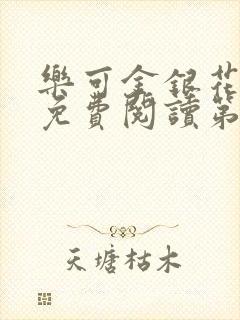 樂可金銀花
免費閱讀第
天塘枯木